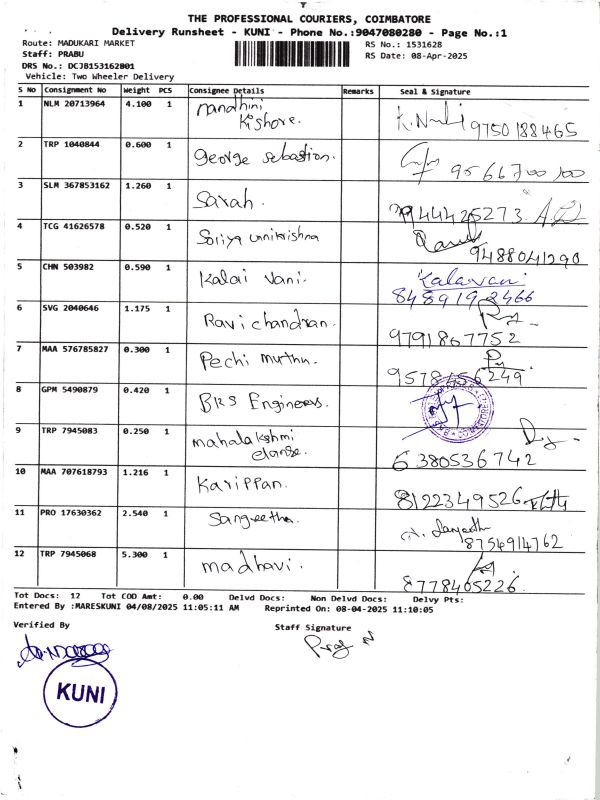 THE PROFESSIONAL COURIERS, COIMBATORE
Delivery Runsheet - KUNI - Phone No.:9047080280 - Page No.:1
Route: MADUKARI MARKET
RS No.: 1531628
Staff: PRABU
RS Date: 08-Apr-2025
DRS No.: DCJB153162801
Vehicle: Two Wheeler Delivery
S No Consignment No Weight PCS Consignee Details Remarks Seal & Signature
1 NLM 20713964 4.100 1 nandhini
Kishore. 9750188465
2 TRP 1040844 0.600 1 george sebastion. 9566700100
3 SLM 367853162 1.260 1 Sarah. 9444425273
4 TCG 41626578 0.520 1 Soriya unnikrishna 9488041290
5 CHN 503982 0.590 1 Kalai vani. Kalaivani
8489192466
6 SVG 2040646 1.175 1 Ravi chandran. 9791867752
7 MAA 576785827 0.300 1 Pechi muthu. 9578456249
8 GPM 5490879 0.420 1 BKS Engineers.
9 TRP 7945083 0.250 1 mahalakshmi
elango. 6380536742
10 MAA 707618793 1.216 1 Karippan. 8122349526
11 PRO 17630362 2.540 1 Sangeetha. 8754914762
12 TRP 7945068 5.300 1 madhavi. 8778405226
Tot Docs: 12 Tot COD Amt: 0.00 Delvd Docs: Non Delvd Docs: Delvy Pts:
Entered By :MARESKUNI 04/08/2025 11:05:11 AM Reprinted On: 08-04-2025 11:10:05
Verified By
Staff Signature
KUNI